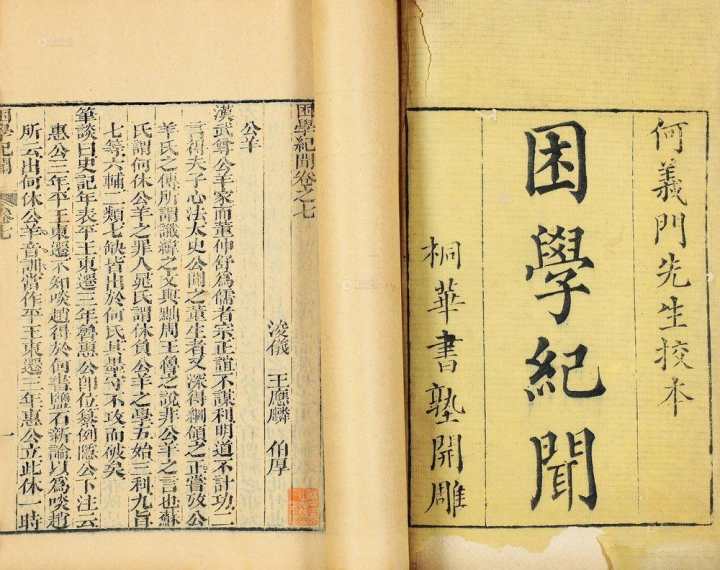 何義門先生校本
困學紀聞
桐華書塾開雕
困學紀聞卷之七
浚儀 王應麟 伯厚
公羊
漢武尊公羊家而董仲舒爲儒者宗正誼不謀利明道不計功二
言得夫子心法太史公聞之董生者又深得綱領之正嘗攷公
羊氏之傳所謂讖緯之文與黜周王魯之說非公羊之言也蘇
氏謂何休公羊之罪人晁氏謂休負公羊之學五始三科九旨
七等六輔二類七缺皆出於何氏其墨守不攻而破矣
筆談曰史記年表平王東遷三年魯惠公卽位纂例隱公下注云
惠公三年平王東遷不知啖趙得於何書鹽石新論以爲啖趙
所云出何休公羊音訓當作平王東遷三年惠公立此休一時
困學紀聞 卷七 一